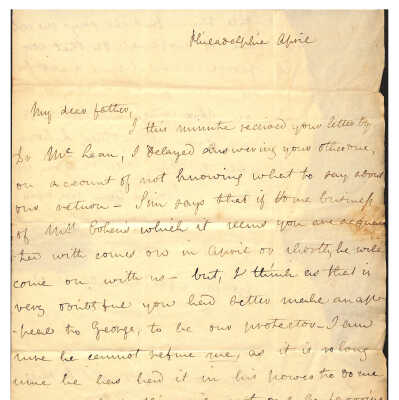 Philadelphia April
My dear father,
I this minute received your letter by
Dr McLean, I delayed answering your other one,
on account of not knowing what to say about
our return – Sim says that if some business
of Mrs Cohens which it seems you are acquain
ted with comes on in April or shortly he will
come on with us – but, I think as that is
very doubtful you had better make an ap-
peal to George, to be our protector – I am
sure he cannot refuse me, as it is so long
since he has had it in his power to do me